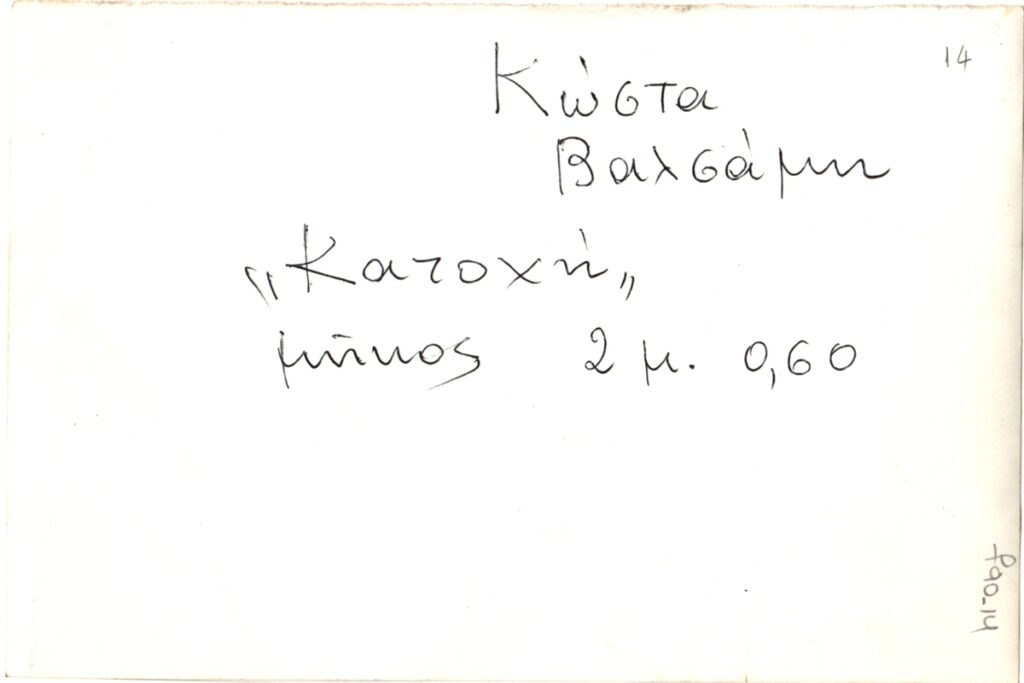 14
Κώστα
Βαλσάμη
„Κατοχή„
μῆκος 2 μ. 0,60
φ90-14